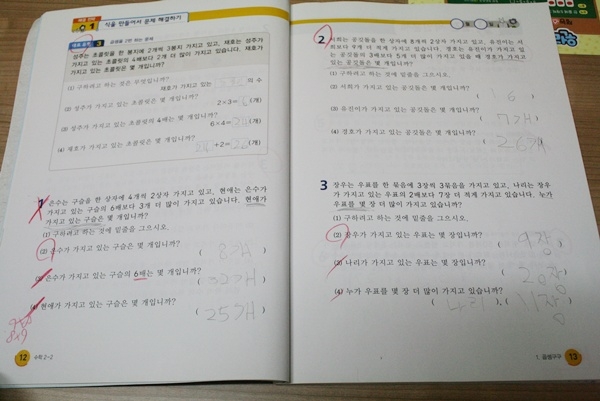 01 식을 만들어서 문제 해결하기
대표 문제 3 곱셈을 2번 하는 문제
성주는 초콜릿을 한 봉지에 2개씩 3봉지 가지고 있고, 재호는 성주가
가지고 있는 초콜릿의 4배보다 2개 더 많이 가지고 있습니다. 재호가
가지고 있는 초콜릿은 몇 개입니까?
(1) 구하려고 하는 것은 무엇입니까?
재호가 가지고 있는 의 수
(2) 성주가 가지고 있는 초콜릿은 몇 개입니까?
2×3=6(개)
(3) 성주가 가지고 있는 초콜릿의 4배는 몇 개입니까?
6×4=24(개)
(4) 재호가 가지고 있는 초콜릿은 몇 개입니까?
24+2=26(개)
1 은수는 구슬을 한 상자에 4개씩 2상자 가지고 있고, 현애는 은수가
가지고 있는 구슬의 6배보다 3개 더 많이 가지고 있습니다. 현애가
가지고 있는 구슬은 몇 개입니까?
(1) 구하려고 하는 것에 밑줄을 그으시오.
(2) 은수가 가지고 있는 구슬은 몇 개입니까?
( 8개 )
(3) 은수가 가지고 있는 구슬의 6배는 몇 개입니까?
( 32개 )
(4) 현애가 가지고 있는 구슬은 몇 개입니까?
( 25개 )
12 수학 2-2
2 서희는 공깃돌을 한 상자에 8개씩 2상자 가지고 있고, 유진이는 서
희보다 9개 더 적게 가지고 있습니다. 경호는 유진이가 가지고 있
는 공깃돌의 3배보다 5개 더 많이 가지고 있을 때 경호가 가지고
있는 공깃돌은 몇 개입니까?
(1) 구하려고 하는 것에 밑줄을 그으시오.
(2) 서희가 가지고 있는 공깃돌은 몇 개입니까?
( 16 )
(3) 유진이가 가지고 있는 공깃돌은 몇 개입니까?
( 7개 )
(4) 경호가 가지고 있는 공깃돌은 몇 개입니까?
( 26개 )
3 장우는 우표를 한 묶음에 3장씩 3묶음을 가지고 있고, 나리는 장우
가 가지고 있는 우표의 2배보다 7장 더 적게 가지고 있습니다. 누가
우표를 몇 장 더 많이 가지고 있습니까?
(1) 구하려고 하는 것에 밑줄을 그으시오.
(2) 장우가 가지고 있는 우표는 몇 장입니까?
( 9장 )
(3) 나리가 가지고 있는 우표는 몇 장입니까?
( 20장 )
(4) 누가 우표를 몇 장 더 많이 가지고 있습니까?
( 나리 ), ( 11장 )
1. 곱셈구구 13